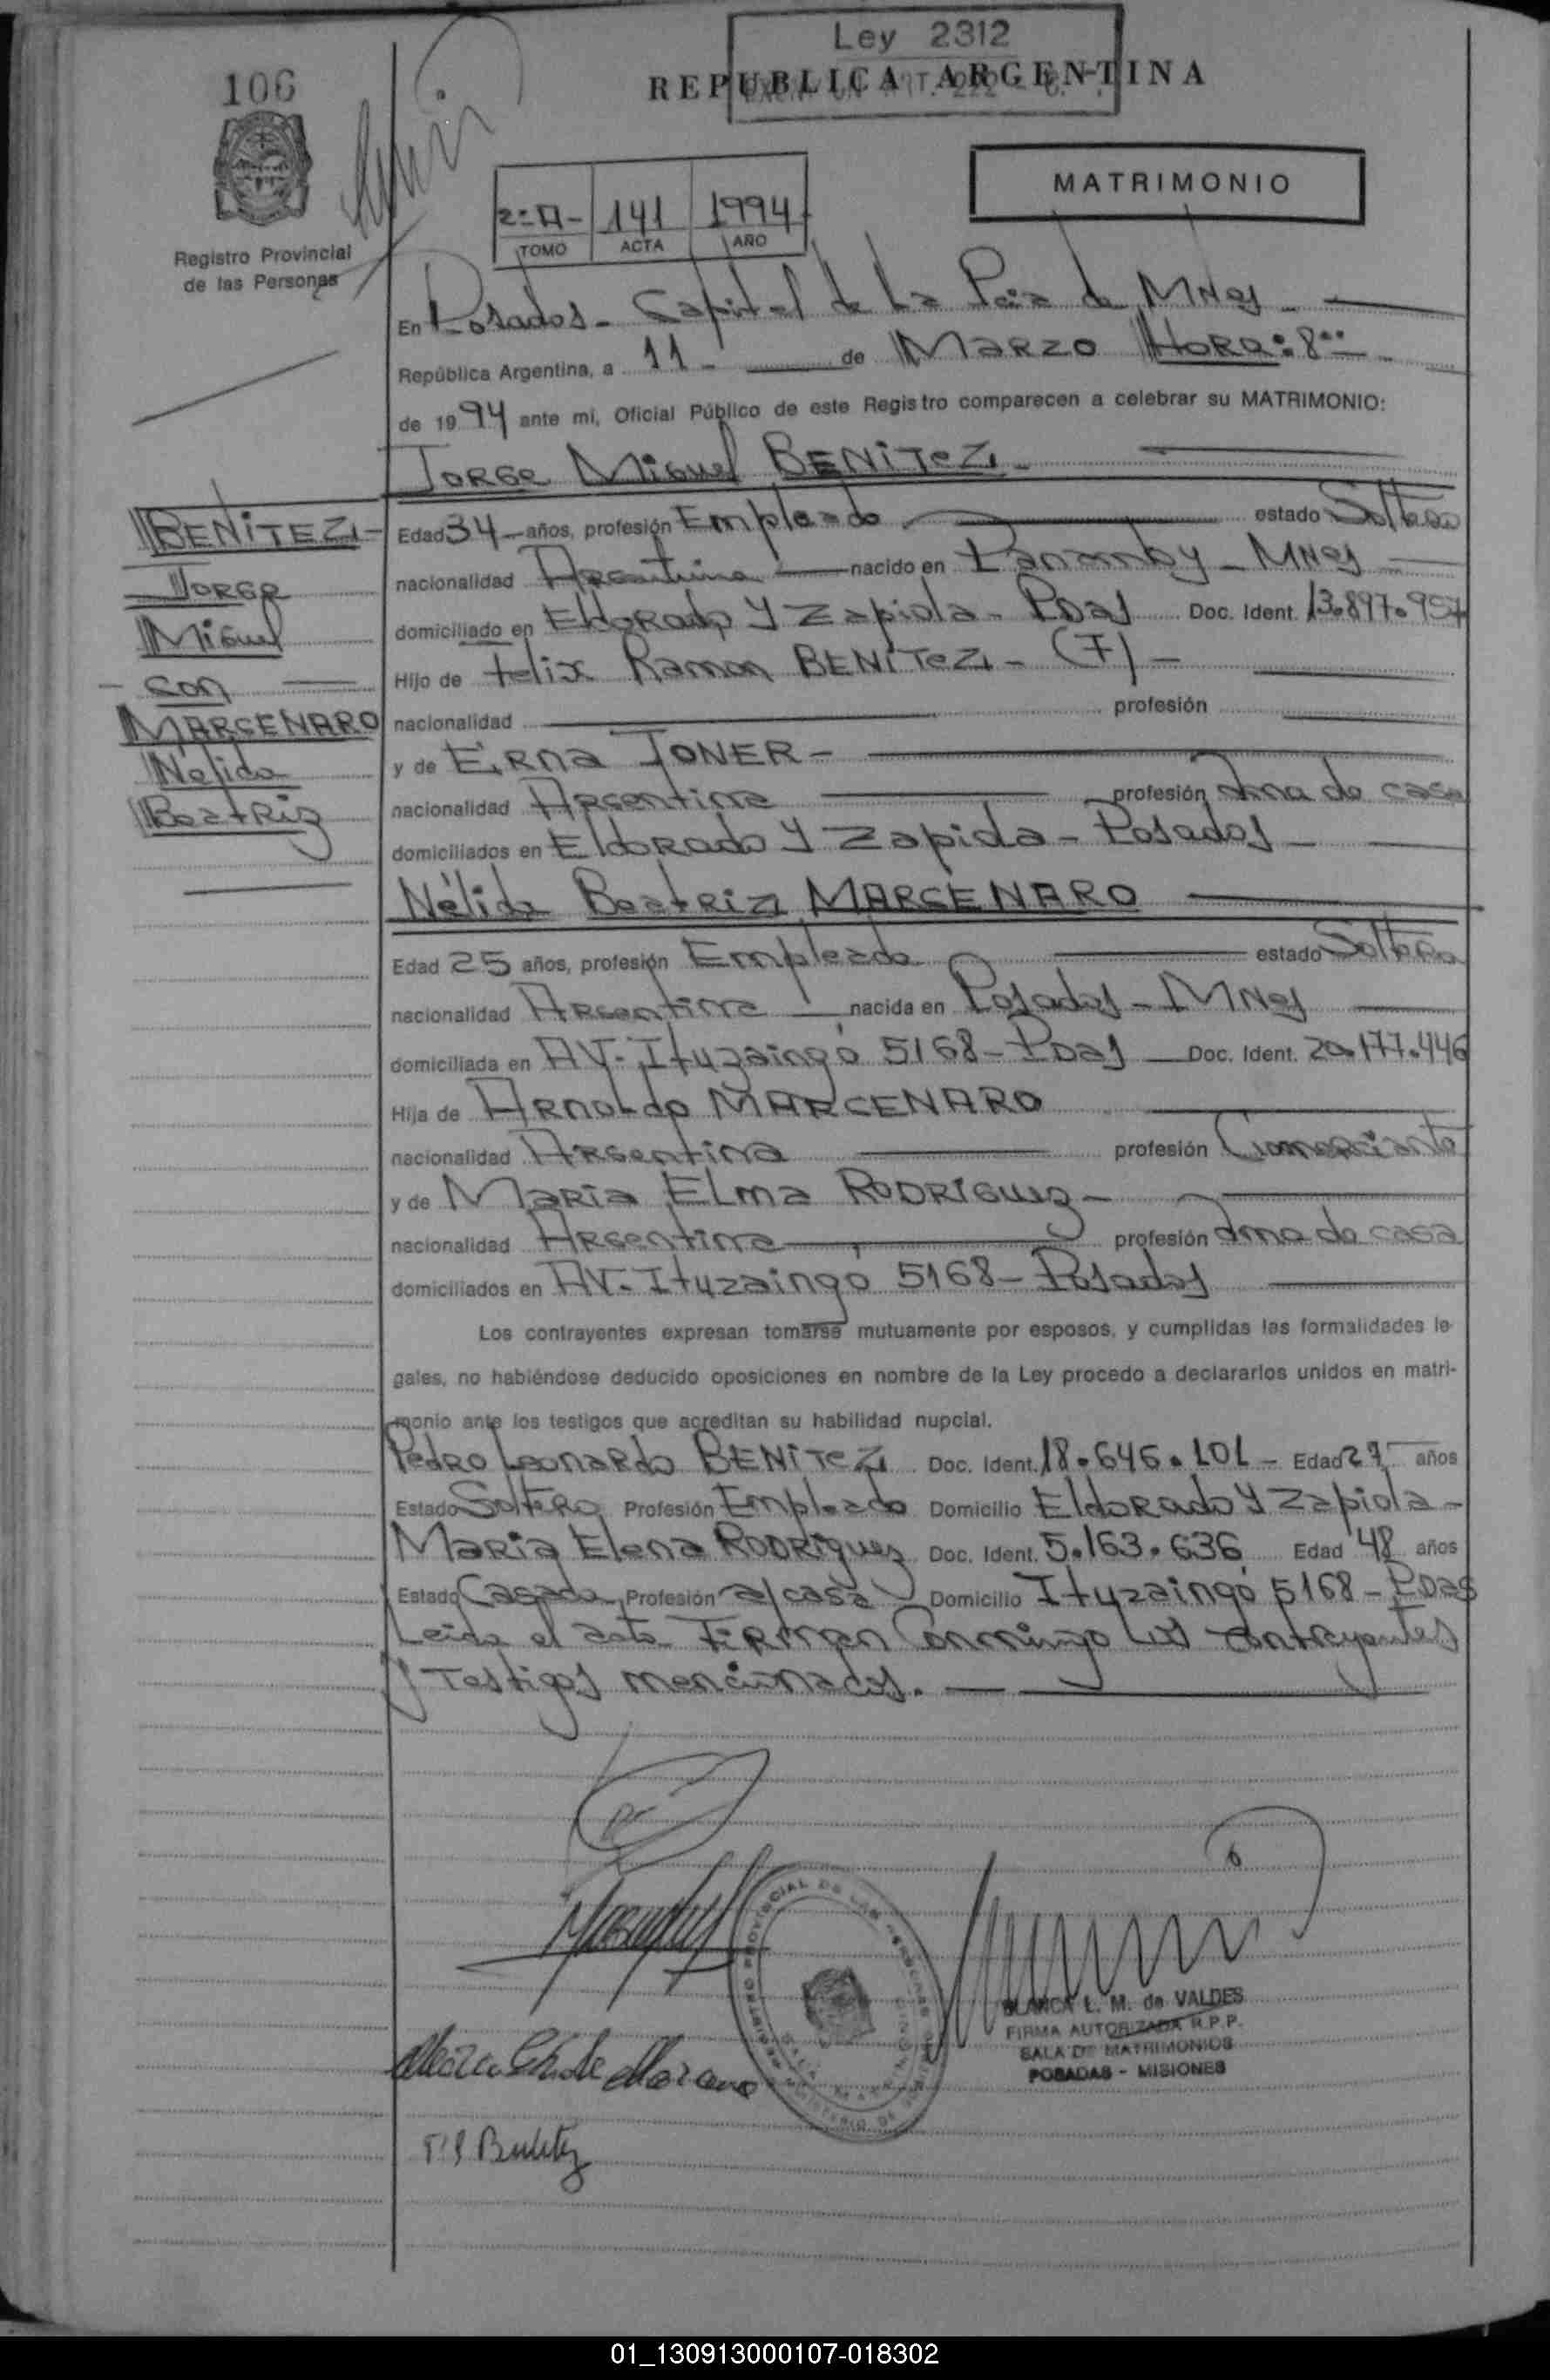 Ley 2312
106
REPUBLICA ARGENTINA
MATRIMONIO
2=A- 141 1994
TOMO ACTA AÑO
Registro Provincial
de las Personas
En Posadas - Capital de La Pcia de Mnes
República Argentina, a 11 - de Marzo Hora: 8
de 1994 ante mi, Oficial Público de este Registro comparecen a celebrar su MATRIMONIO:
Jorge Miguel BENITEZ -
BENITEZ -
Jorge
Miguel
- con
MARCENARO
Nélida
Beatriz
Edad 34 - años, profesión Empleado estado Soltero
nacionalidad Argentina nacido en Panamby - Mnes
domiciliado en Eldorado y Zapiola - Pdas Doc. Ident. 13.897.957
Hijo de Felix Ramon BENITEZ - (F) -
nacionalidad profesión
y de Erna TONER -
nacionalidad Argentina profesión Ama de casa
domiciliados en Eldorado y Zapiola - Posadas
Nélida Beatriz MARCENARO
Edad 25 años, profesión Empleada estado Soltera
nacionalidad Argentina nacida en Posadas - Mnes
domiciliada en AV. Ituzaingó 5168 - Pdas Doc. Ident. 20.177.446
Hija de Arnoldo MARCENARO
nacionalidad Argentina profesión Comerciante
y de Maria Elma RODRIGUEZ -
nacionalidad Argentina profesión Ama de casa
domiciliados en AV. Ituzaingó 5168 - Posadas
Los contrayentes expresan tomarse mutuamente por esposos, y cumplidas las formalidades le-
gales, no habiéndose deducido oposiciones en nombre de la Ley procedo a declararlos unidos en matri-
monio ante los testigos que acreditan su habilidad nupcial.
Pedro Leonardo BENITEZ Doc. Ident. 18.646.101 - Edad 27 años
Estado Soltero Profesión Empleado Domicilio Eldorado y Zapiola -
Maria Elena RODRIGUEZ Doc. Ident. 5.163.636 Edad 48 años
Estado Casada Profesión a/casa Domicilio Ituzaingó 5168 - Pdas
Leida el acta Firman Conmingo los contrayentes
y Testigos mencionados.
BLANCA L. M. de VALDES
FIRMA AUTORIZADA R.P.P.
SALA DE MATRIMONIOS
POSADAS - MISIONES
01_130913000107-018302